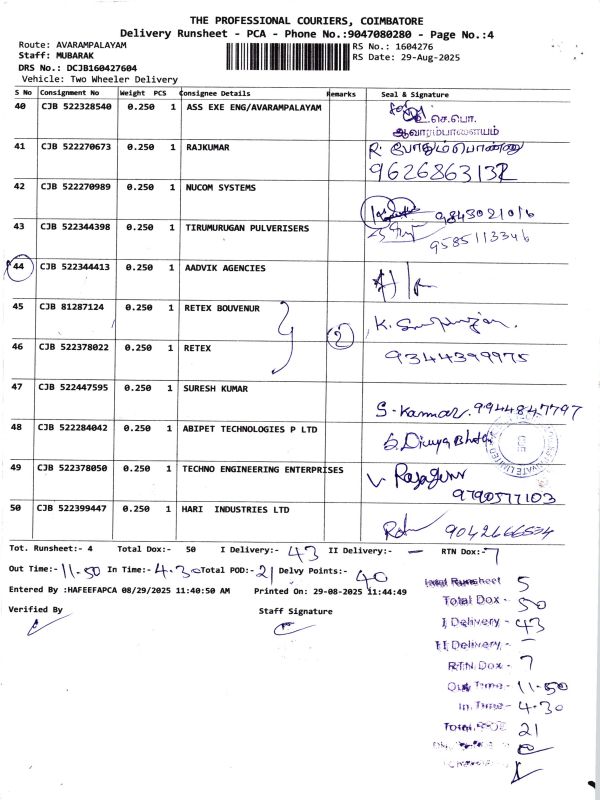 THE PROFESSIONAL COURIERS, COIMBATORE
Delivery Runsheet - PCA - Phone No.:9047080280 - Page No.:4
Route: AVARAMPALAYAM RS No.: 1604276
Staff: MUBARAK RS Date: 29-Aug-2025
DRS No.: DCJB160427604
Vehicle: Two Wheeler Delivery
S No Consignment No Weight PCS Consignee Details Remarks Seal & Signature
40 CJB 522328540 0.250 1 ASS EXE ENG/AVARAMPALAYAM உ.செ.பொ.
ஆவாரம்பாளையம்
41 CJB 522270673 0.250 1 RAJKUMAR R.
9626863132
42 CJB 522270989 0.250 1 NUCOM SYSTEMS
9843021016
43 CJB 522344398 0.250 1 TIRUMURUGAN PULVERISERS
9585113346
44 CJB 522344413 0.250 1 AADVIK AGENCIES
45 CJB 81287124 0.250 1 RETEX BOUVENUR 2 K.
46 CJB 522378022 0.250 1 RETEX 9344399975
47 CJB 522447595 0.250 1 SURESH KUMAR
S. Kannan. 9944847797
48 CJB 522284042 0.250 1 ABIPET TECHNOLOGIES P LTD G. Divya Bharathi
49 CJB 522378050 0.250 1 TECHNO ENGINEERING ENTERPRISES V.
9790577103
50 CJB 522399447 0.250 1 HARI INDUSTRIES LTD
9042666534
Tot. Runsheet:- 4 Total Dox:- 50 I Delivery:- 43 II Delivery:- — RTN Dox:- 7
Out Time:- 11-50 In Time:- 4-30 Total POD:- 21 Delvy Points:- 40
Entered By :HAFEEFAPCA 08/29/2025 11:40:50 AM Printed On: 29-08-2025 11:44:49
Verified By Staff Signature
Total Runsheet 5
Total Dox - 50
I Delivery - 43
II Delivery - —
RTN Dox - 7
Out Time:- 11-50
In Time:- 4-30
Total POD 21